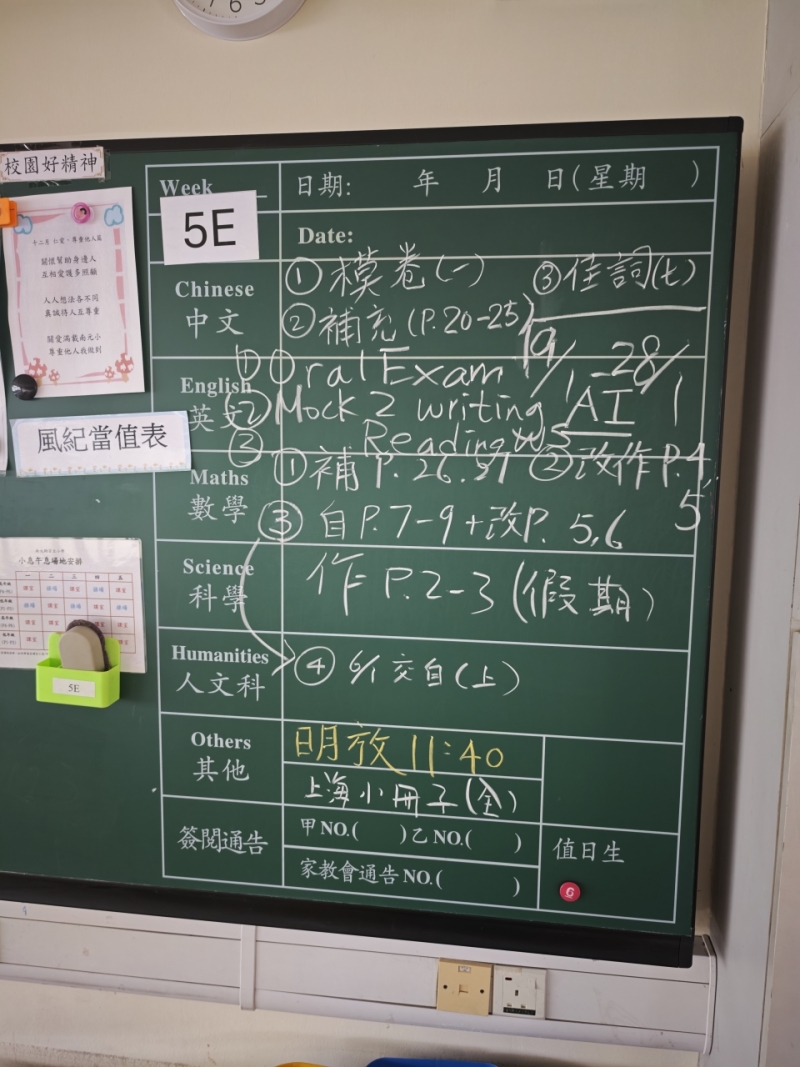 校園好精神
Week
日期: 年 月 日(星期 )
5E
Date:
十二月 仁愛，尊重他人篇
關懷幫助身邊人
在相愛護多照顧
人人想法各不同
真誠待人並尊重
關愛滿載南元小
尊重他人我做到
Chinese
中文
① 模卷(一) ③佳詞(七)
② 補充(P.20-25)
English
英文
① Oral Exam 19/1-28/1
② Mock 2 writing AI
③ Reading WS
風紀當值表
Maths
數學
① 補 P.26.27 ② 改作 P.4,5
③ 自 P.7-9+改P. 5,6
小息午息場地安排
一 二 三 四 五
Science
科學
作 P.2-3(假期)
5E
Humanities
人文科
④ 6/1 交自(上)
Others
其他
明放 11:40
上海小冊子(全)
簽閱通告
甲 NO.( )乙 NO.( )
家教會通告 NO.( )
值日生